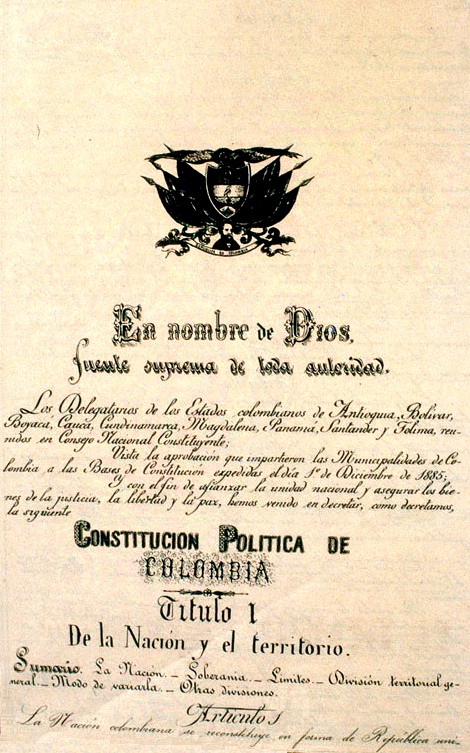 En nombre de Dios,
fuente suprema de toda autoridad.
Los Delegatarios de los Estados colombianos de Antioquia, Bolívar,
Boyacá, Cauca, Cundinamarca, Magdalena, Panamá, Santander y Tolima, reu-
nidos en Consejo Nacional Constituyente;
Vista la aprobación que impartieron las Municipalidades de Co-
lombia a las Bases de Constitución expedidas el día 1º de Diciembre de 1885;
Y con el fin de afianzar la unidad nacional y asegurar los bie-
nes de la justicia, la libertad y la paz, hemos venido en decretar, como decretamos,
la siguiente
CONSTITUCION POLITICA DE
COLOMBIA
Titulo I
De la Nación y el territorio.
Sumario. La Nación. – Soberania. – Limites. – División territorial ge-
neral. – Modo de variarla. – Otras divisiones.
Articulos
La Nación colombiana se reconstituye en forma de República uni-